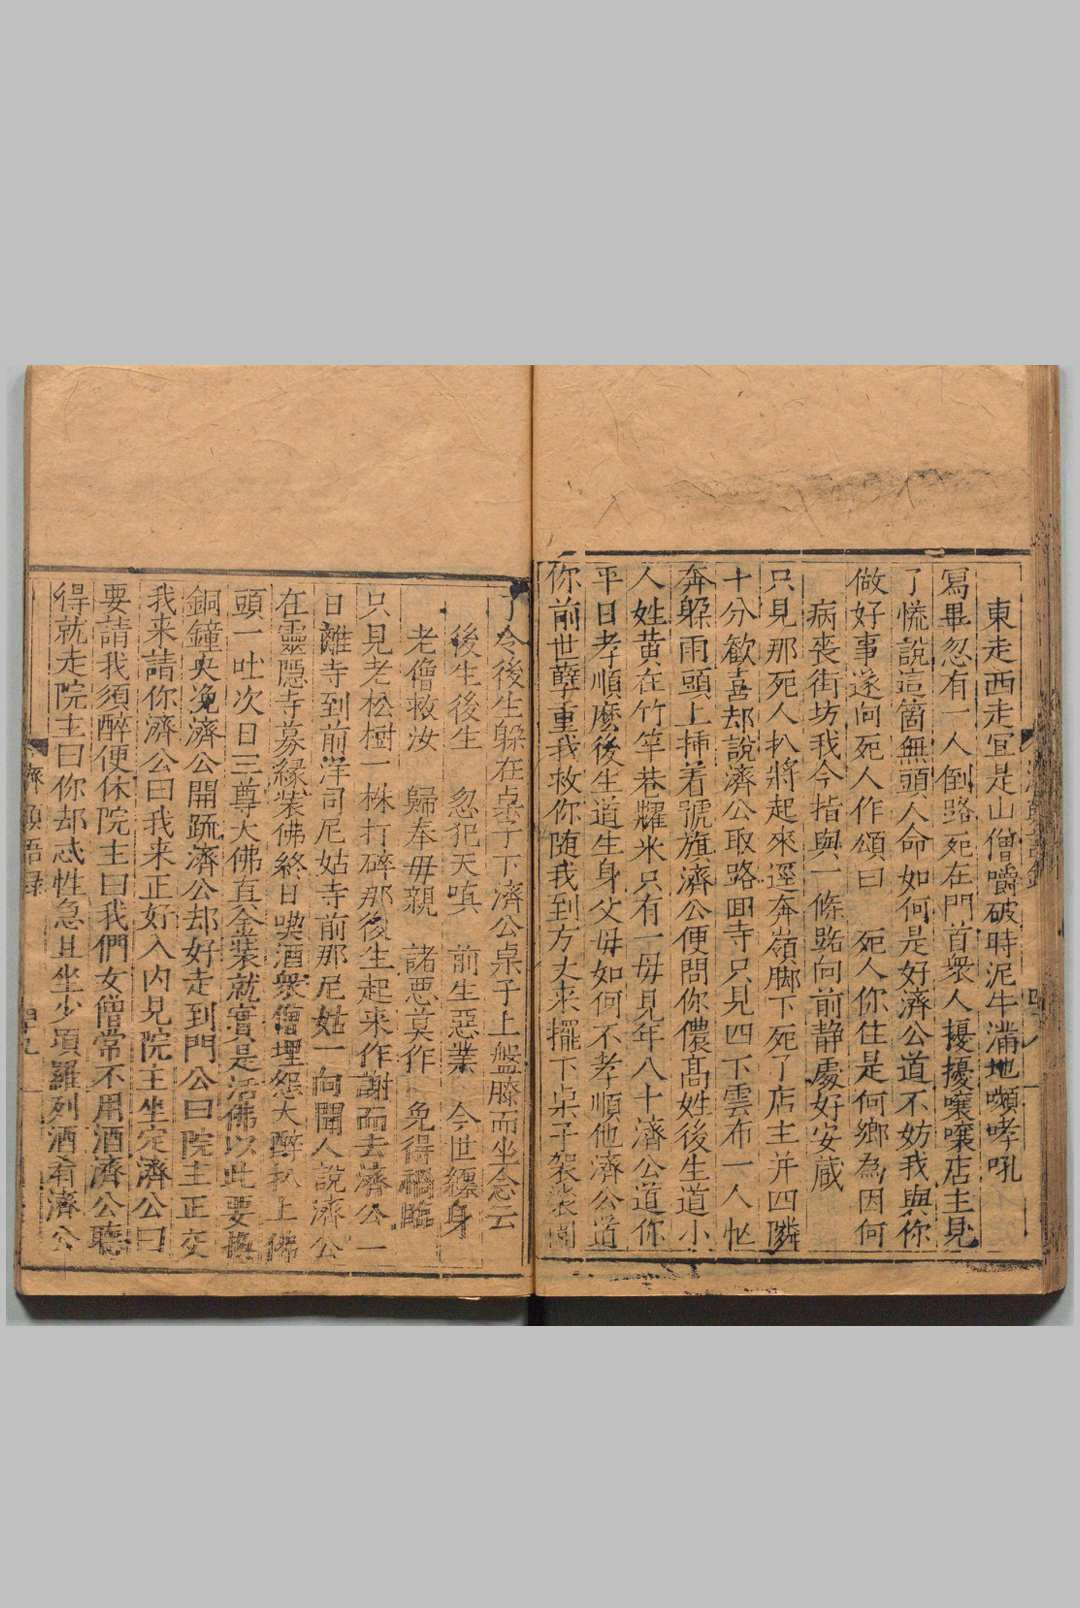 東走西走宜是山僧嚼破時泥牛滿地嚬哮吼
寫畢忽有一人倒路死在門首衆人擾擾嚷嚷店主見
了慌說這箇無頭人命如何是好濟公道不妨我與你
做好事遂向死人作頌曰　死人你住是何鄉為因何
病喪街坊我今指與一條路向前静處好安藏
只見那死人扒將起來逕奔嶺脚下死了店主并四隣
十分歡喜却說濟公取路回寺只見四下雲布一人忙
奔躲雨頭上揷着號旗濟公便問你儂高姓後生道小
人姓黃在竹竿巷糶米只有一母見年八十濟公道你
平日孝順麽後生道生身父母如何不孝順他濟公道
你前世孽重我救你随我到方丈来擺下卓子袈裟圍
了令後生躲在桌子下濟公桌子上盤膝而坐念云
後生後生　忽犯天嗔　前生惡業　今世纏身
老僧救汝　歸奉母親　諸悪莫作　免得禍臨
只見老松樹一株打碎那後生起来作謝而去濟公一
日離寺到前洋司尼姑寺前那尼姑一向聞人說濟公
在靈隐寺募縁裝佛終日喫酒衆僧埋怨大醉扒上佛
頭一吐次日三尊大佛直金装就實是活佛以此要換
銅鐘央浼濟公開䟽濟公却好走到門公曰院主正交
我来請你濟公曰我来正好入内見院主坐定濟公曰
要請我須醉便休院主曰我們女僧常不用酒濟公聽
得就走院主曰你却忒性急且坐少項羅列酒肴濟公
濟顛語録
四十九